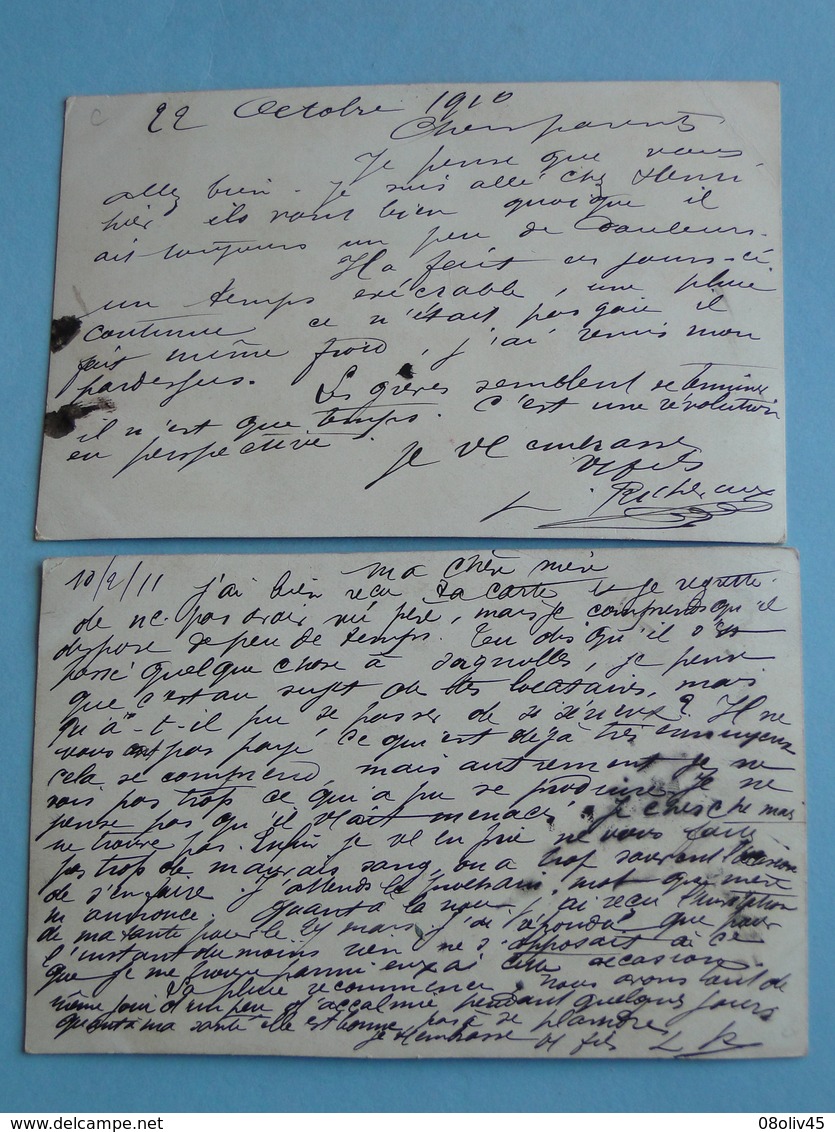 22 Octobre 1910
Chers parents
Je pense que vous
allez bien. Je suis allé chez Henri
hier ils vont bien quoique il
ait toujours un peu de douleurs.
Il a fait ces jours-ci
un temps exécrable, une pluie
continue ce n'était pas gaie il
fait même froid, j'ai remis mon
pardessus. Les grèves semblent se terminer
il n'est que temps. C'est une révolution
en perspective.
Je vs embrasse
Vt fils
L.
10/2/11 Ma chère mère
J'ai bien reçu ta carte et je regrette
de ne pas avoir vu père, mais je comprends qu'il
dispose de peu de temps. Tu dis qu'il s'est
passé quelque chose à je pense
que c'est au sujet de tes locataires, mais
qu'a-t-il pu se passer de si sérieux? Il ne
vous ont pas payé ce qui est déjà très ennuyeux
cela se comprend, mais autrement je ne
vois pas trop ce qui a pu se produire. Je ne
pense pas qu'il vs ait menacé. Je cherche mais
ne trouve pas. Enfin je vs en prie ne vous faites
pas trop de mauvais sang, on a trop souvent l'occasion
de s'en faire. J'attends le prochain mot que mère
m'annonce. Quant à la noce, j'ai reçu l'invitation
de ma tante pour le 24 mars. J'ai répondu que pour
l'instant du moins rien ne s'opposait à ce
que je me trouve parmi eux à cette occasion.
La pluie recommence, nous avons tout de
même joui d'un peu d'accalmie pendant quelques jours
quant à ma santé elle est bonne pas à se plaindre
Je t'embrasse Vt fils L R
delcampe.net
08oliv45